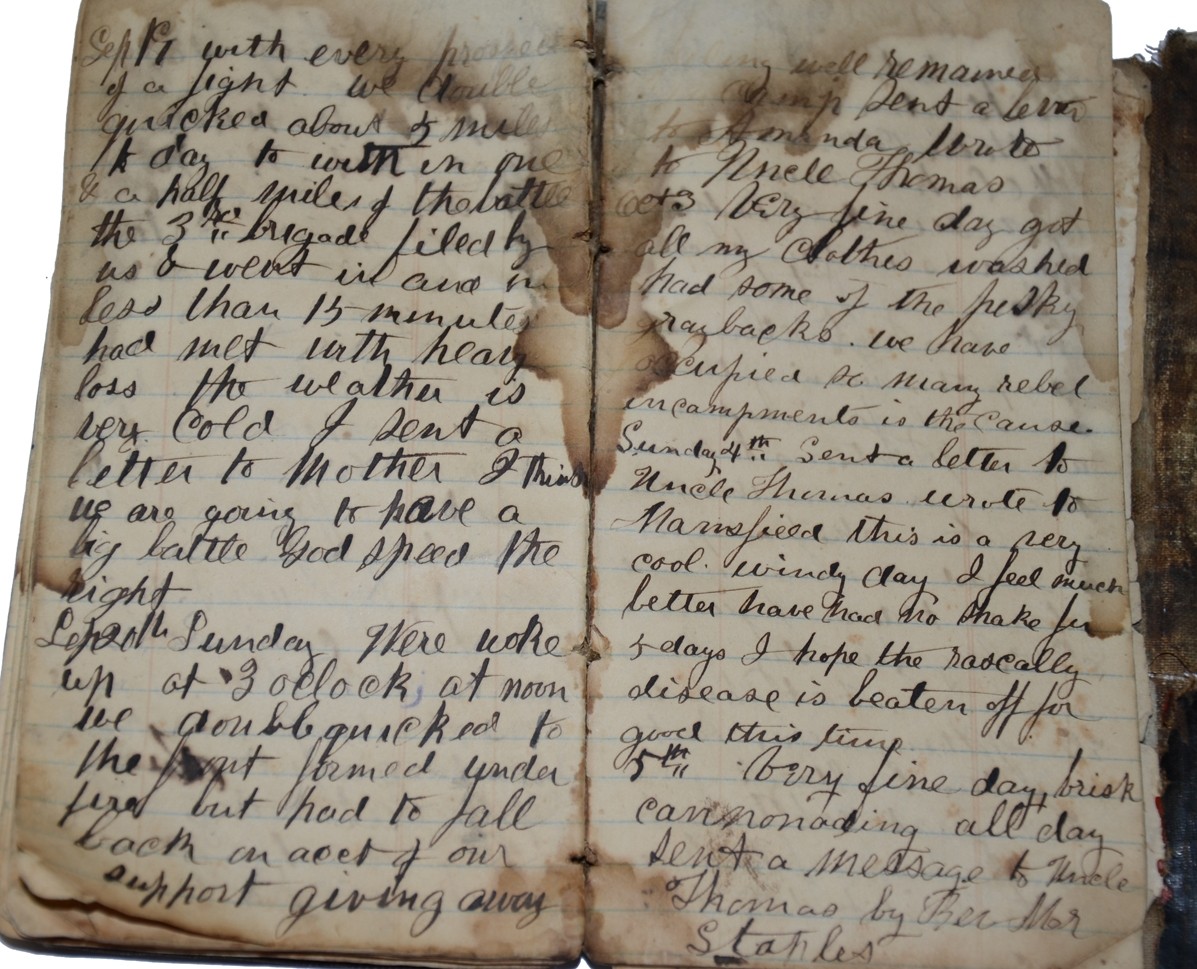 Sep 17 with every prospect
of a fight we double
quicked about 5 miles
to day to with in one
& a half miles of the battle
the 3rd brigade filed by
us & went in and in
less than 15 minutes
had met with heavy
loss the weather is
very cold I sent a
letter to Mother I think
we are going to have a
big battle God speed the
right
Sep 20th Sunday Were woke
up at 3 oclock at noon
we double quicked to
the front formed under
fire but had to fall
back on acct of our
support giving away
well remained
camp sent a letter
to Amanda Wrote
to Uncle Thomas
oct 3 Very fine day got
all my Clothes washed
had some of the pesky
graybacks. we have
occupied so many rebel
incampments is the Cause.
Sunday 4th Sent a letter to
Uncle Thomas wrote to
Mansfield this is a very
cool. windy day I feel much
better have had no shake for
5 days I hope the rascally
disease is beaten off for
good this time
5th Very fine day brisk
cannonading all day
sent a message to Uncle
Thomas by Mr
Staples